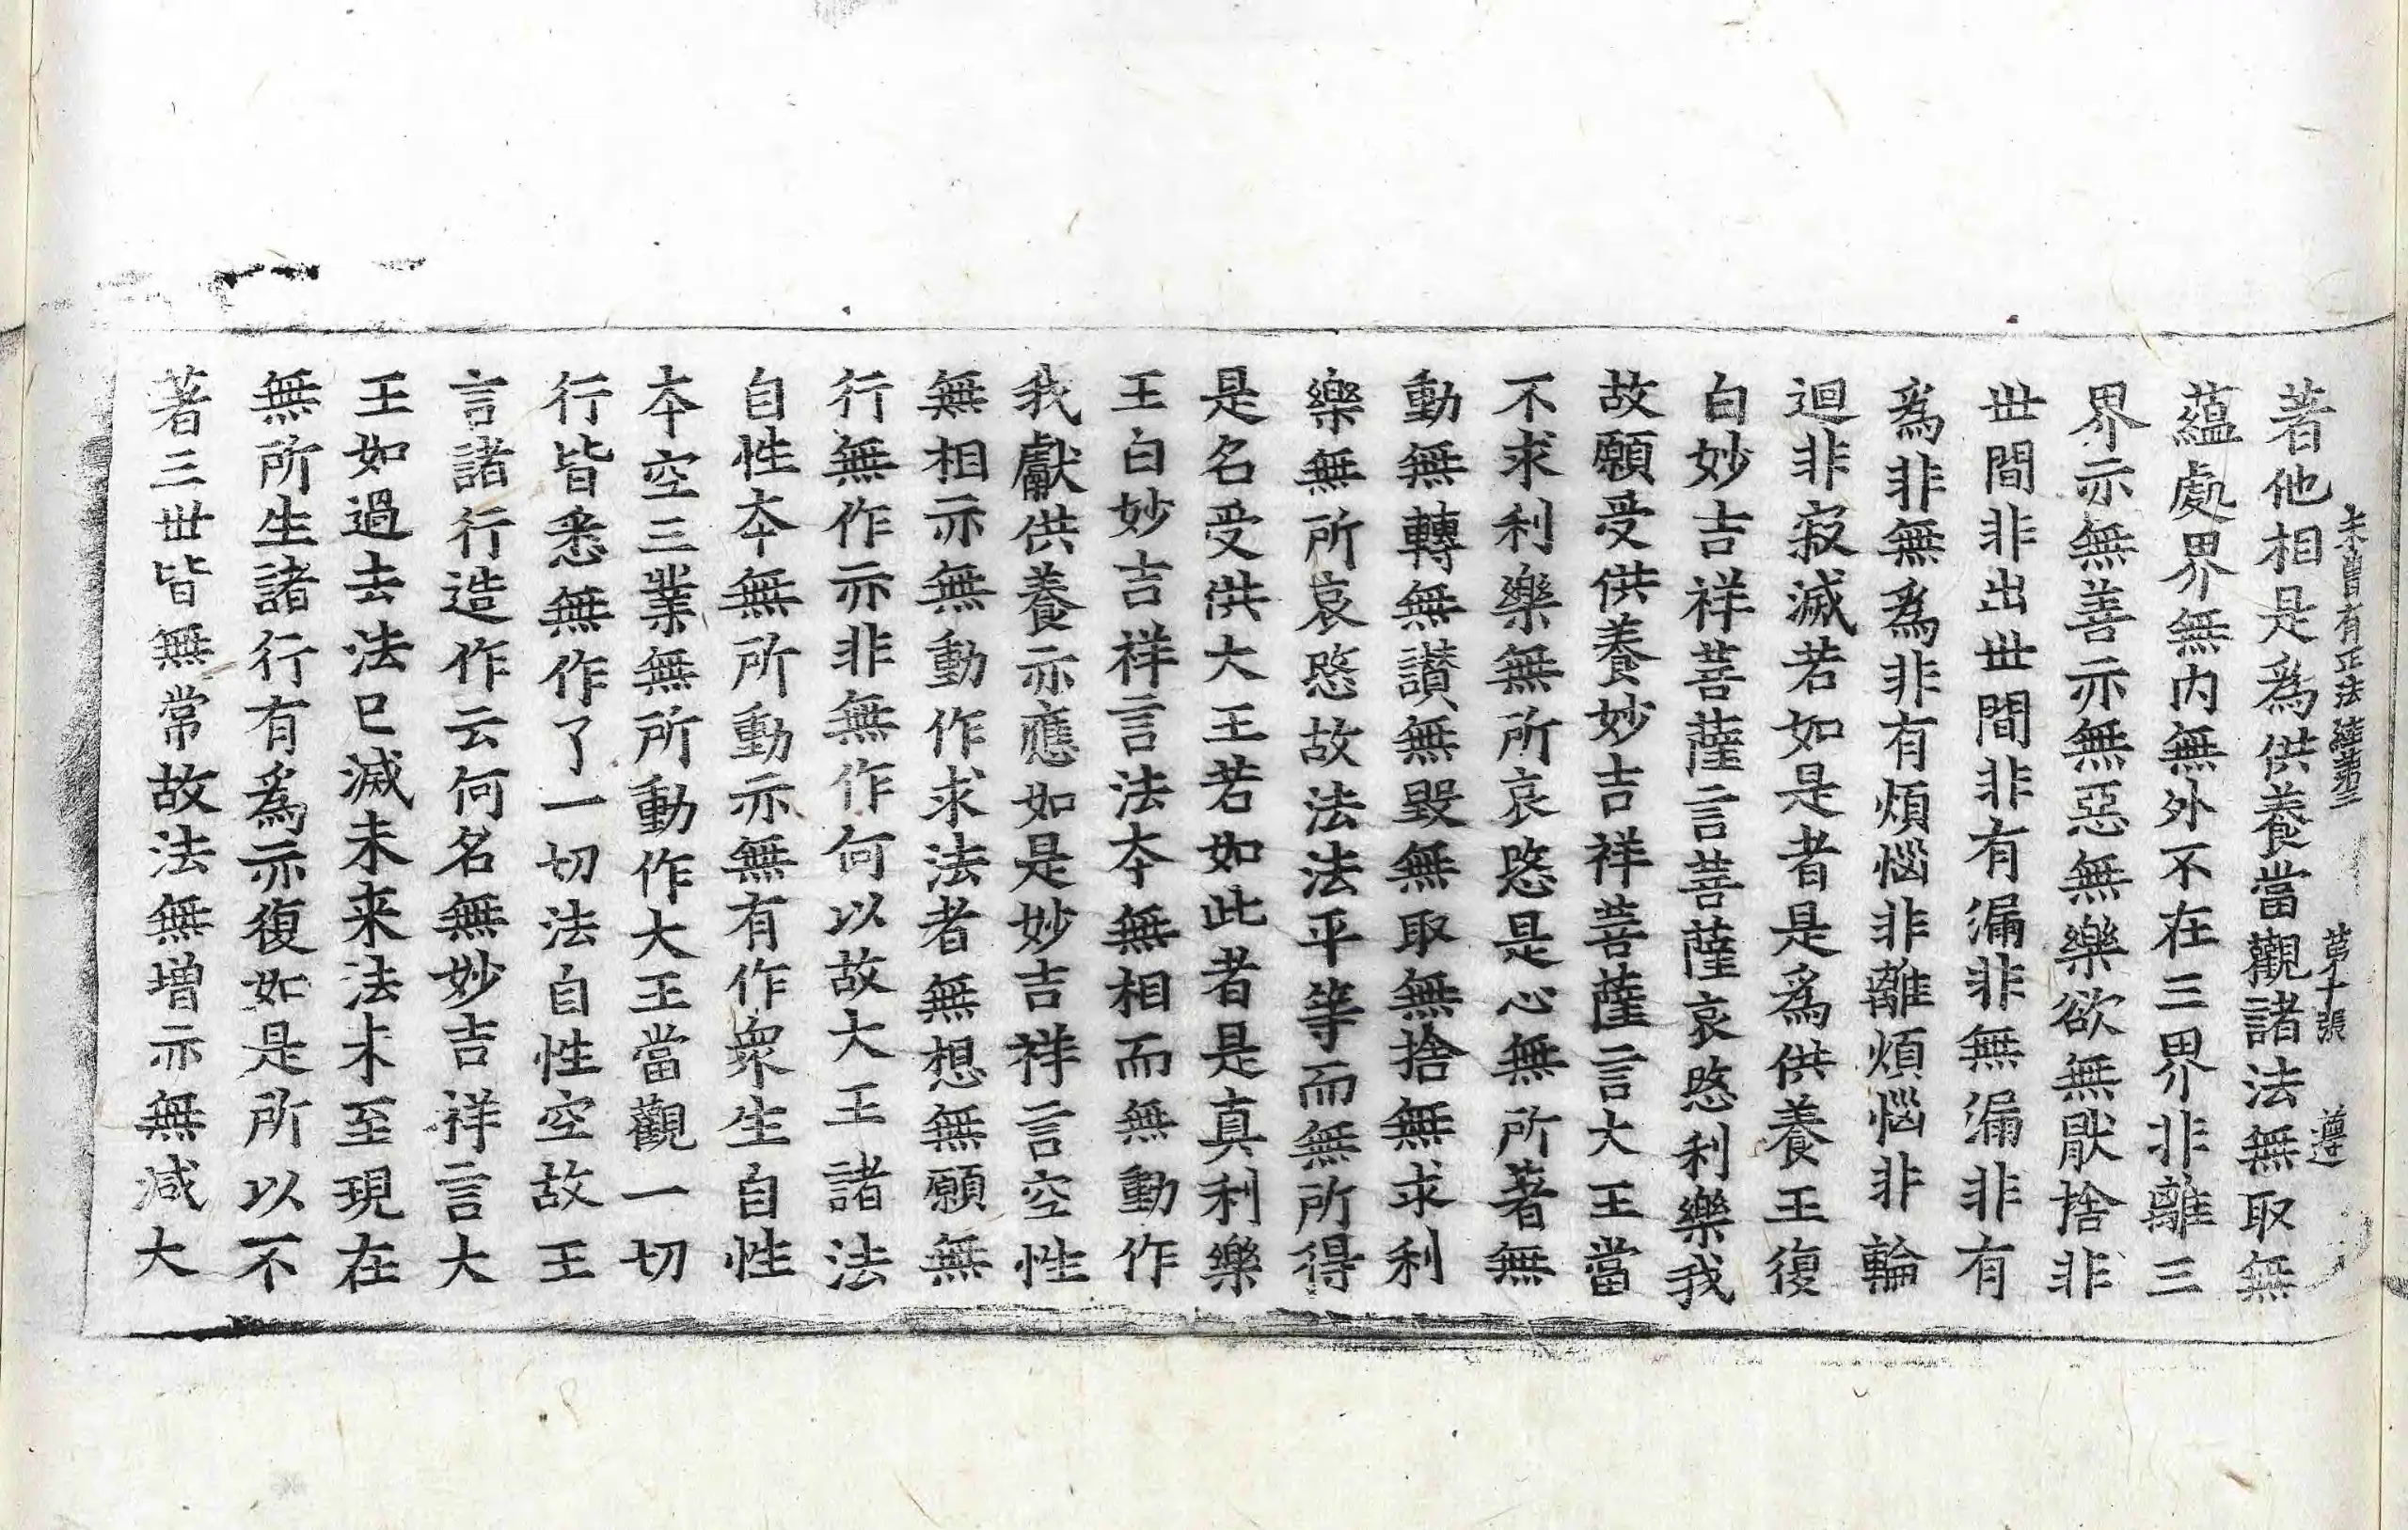 未曾有正法經第三 第十張 遵
著他相是爲供養當觀諸法無取無
蘊處界無內無外不在三界非離三
界亦無善亦無惡無樂欲無猒捨非
世間非出世間非有漏非無漏非有
爲非無爲非有煩惱非離煩惱非輪
迴非寂滅若如是者是爲供養王復
白妙吉祥菩薩言菩薩哀愍利樂我
故願受供養妙吉祥菩薩言大王當
不求利樂無所哀愍是心無所著無
動無轉無讃無毀無取無捨無求利
樂無所哀愍故法法平等而無所得
是名受供大王若如此者是真利樂
王白妙吉祥言法本無相而無動作
我獻供養亦應如是妙吉祥言空性
無相亦無動作求法者無想無願無
行無作亦非無作何以故大王諸法
自性本無所動亦無有作衆生自性
本空三業無所動作大王當觀一切
行皆悉無作了一切法自性空故王
言諸行造作云何名無妙吉祥言大
王如過去法已滅未来法未至現在
無所生諸行有爲亦復如是所以不
著三世皆無常故法無增亦無減大